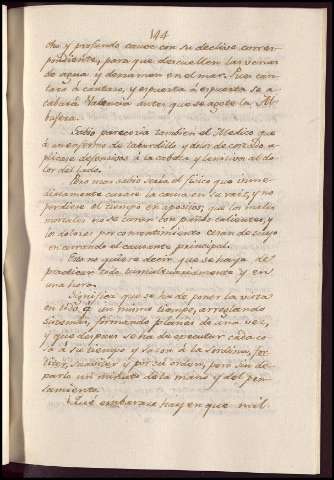 144
cho y profundo cauce con su declive corres-
pondiente, para que descuellen las venas
de agua, y derramen en el mar. Pues cán
taro á cántaro, y espuerta á espuerta se a
cabará Valencia antes que se agote la Al-
bufera.
Sabio parecería tambien el Medico que
á un enfermo de tabardillo, y dolor de costado, a
plicase defensivos á la cabeza y lenitivos al do
lor del lado.
Pero mas sabio sería el físico que inme
diatamente curase la causa en su raiz, y no
perdiese el tiempo en apositos; que los males
mortales no se curan con paños calientes, y
los dolores por consentimiento cesan de suyo
en cerrando el causante principal.
Esto no quiere decir que se haya de
practicar todo tumultuariamente y en
una hora.
Significa que se ha de poner la vista
en todo á un mismo tiempo, arreglando
sistemas, formando planes de una vez,
y que despues se ha de executar cada co
sa á su tiempo y sazon á la sordina, for
y por su orden, pero sin de
jarlo un minuto de la mano y del pen
samiento.
Qué embarazo hay en que mil